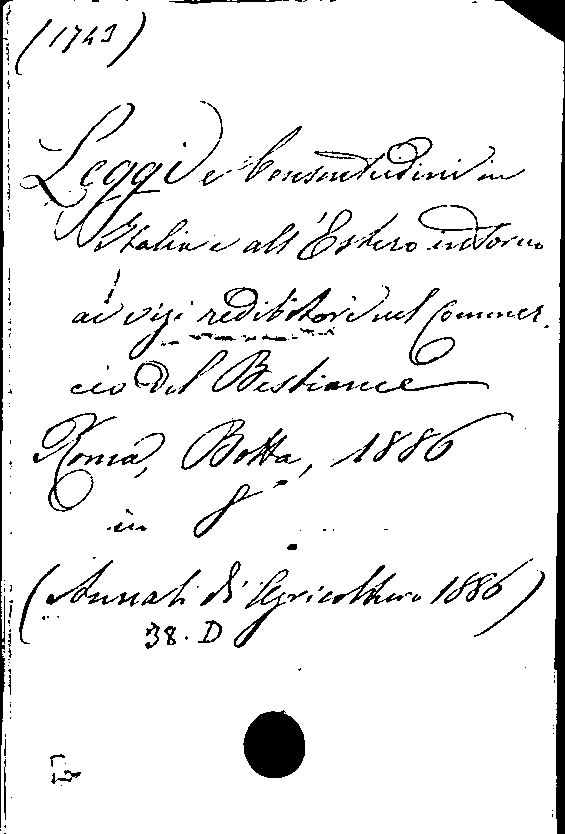 (1743)
Leggi e Consuetudini in
Italia e all'Estero intorno
ai vizi redibitori nel Commer-
cio del Bestiame
Roma, Botta, 1886
in 8°
(Annali di Agricoltura 1886)
38. D